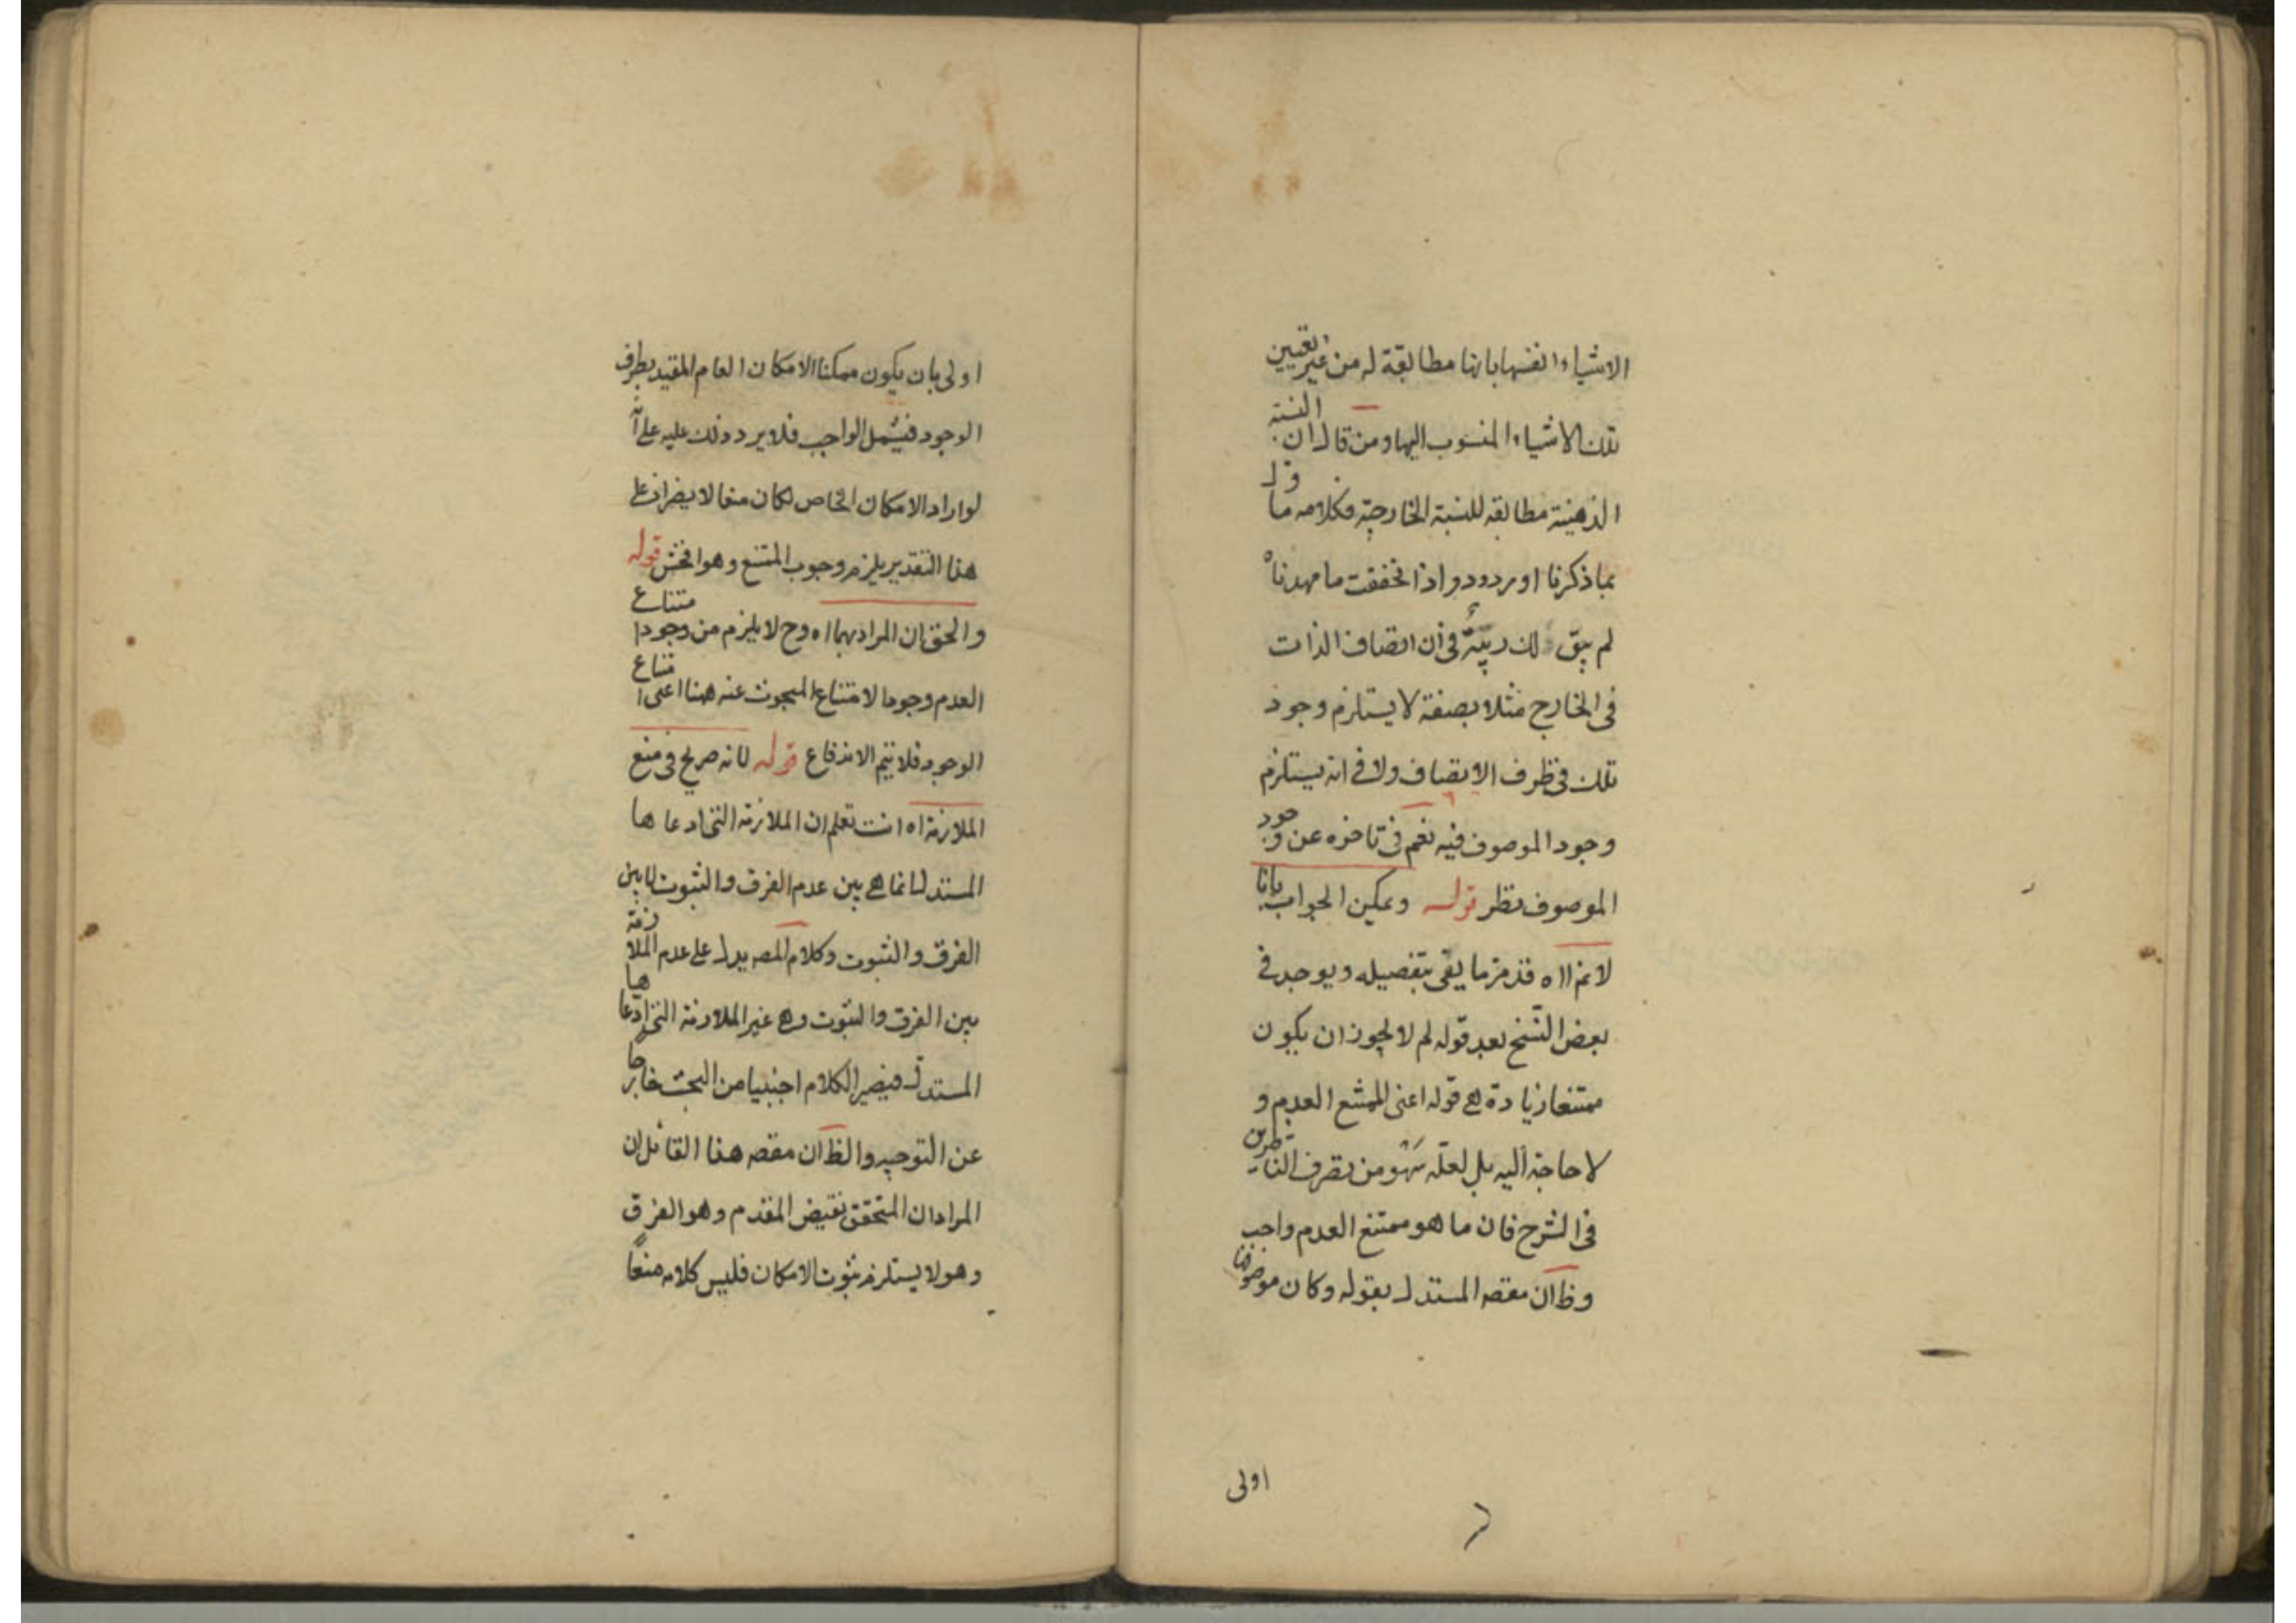 الاشياء انفسها بانها مطابقة له من غير تعيين
تلك الاشياء المنسوب اليها ومن قال ان النسبة
الذهنية مطابقه للنسبة الخارجية فكلامه ماوّل
بما ذكرنا او مردود واذا تحققت ما مهدناه
لم يبق لك ريبة في أن اتصاف الذات
في الخارج مثلا بصفة لا يستلزم وجود
تلك في ظرف الاتصاف ولا في انه يستلزم
وجود الموصوف فيه نعم في تاخره عن وجود
الموصوف نظر قوله ويمكن الجواب بانا
لانم ااه قد مر ما يفي بتفصيله ويوجد في
بعض النسخ بعد قوله لم لا يجوز ان يكون
ممتنعا زيادة هي قوله اعنى الممتنع العدم و
لا حاجة اليه بل لعلّه سَهْو من تصرف الناظرين
في الشرح فان ما هو ممتنع العدم واجب
وظ ان مقصه المستدل بقوله وكان موصوفا
اولى
اولى بان يكون ممكنا الامكان العام المقيد بطرف
الوجود فيشمل الواجب فلا يرد ذلك عليه على انه
لو اراد الامكان الخاص لكان منعا لا يضر اذ على
هذا التقدير يلزم وجوب الممتنع وهو افحش قوله
والحق ان المراد بهما اه وح لا يلزم من وجود امتناع
العدم وجود الامتناع المبحوث عنه ههنا اعنى امتناع
الوجود فلا يتم الاندفاع قوله لانه صريح في منع
الملازمة اه انت تعلم ان الملازمة التى ادعاها
المستدل انما هي بين عدم الفرق والثبوت لا بين
الفرق والثبوت وكلام المصه يدل على عدم الملازمة
بين الفرق والثبوت وهي غير الملازمة التى ادّعاها
المستدل فيصير الكلام اجنبيا من البحث خارجا
عن التوجيه والظ ان مقصه هذا القائل ان
المراد ان المتحقق نقيض المقدم وهو الفرق
وهو لا يستلزم ثبوت الامكان فليس كلامه منعًا